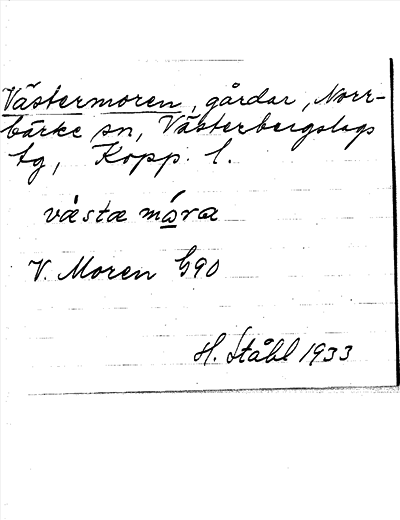 Västermoren, gårdar, Norr-
bärke sn, Västerbergslags
tg, Kopp. l.
væ̀stæ mó̲ra
V. Moren G90
H. Ståhl 1933